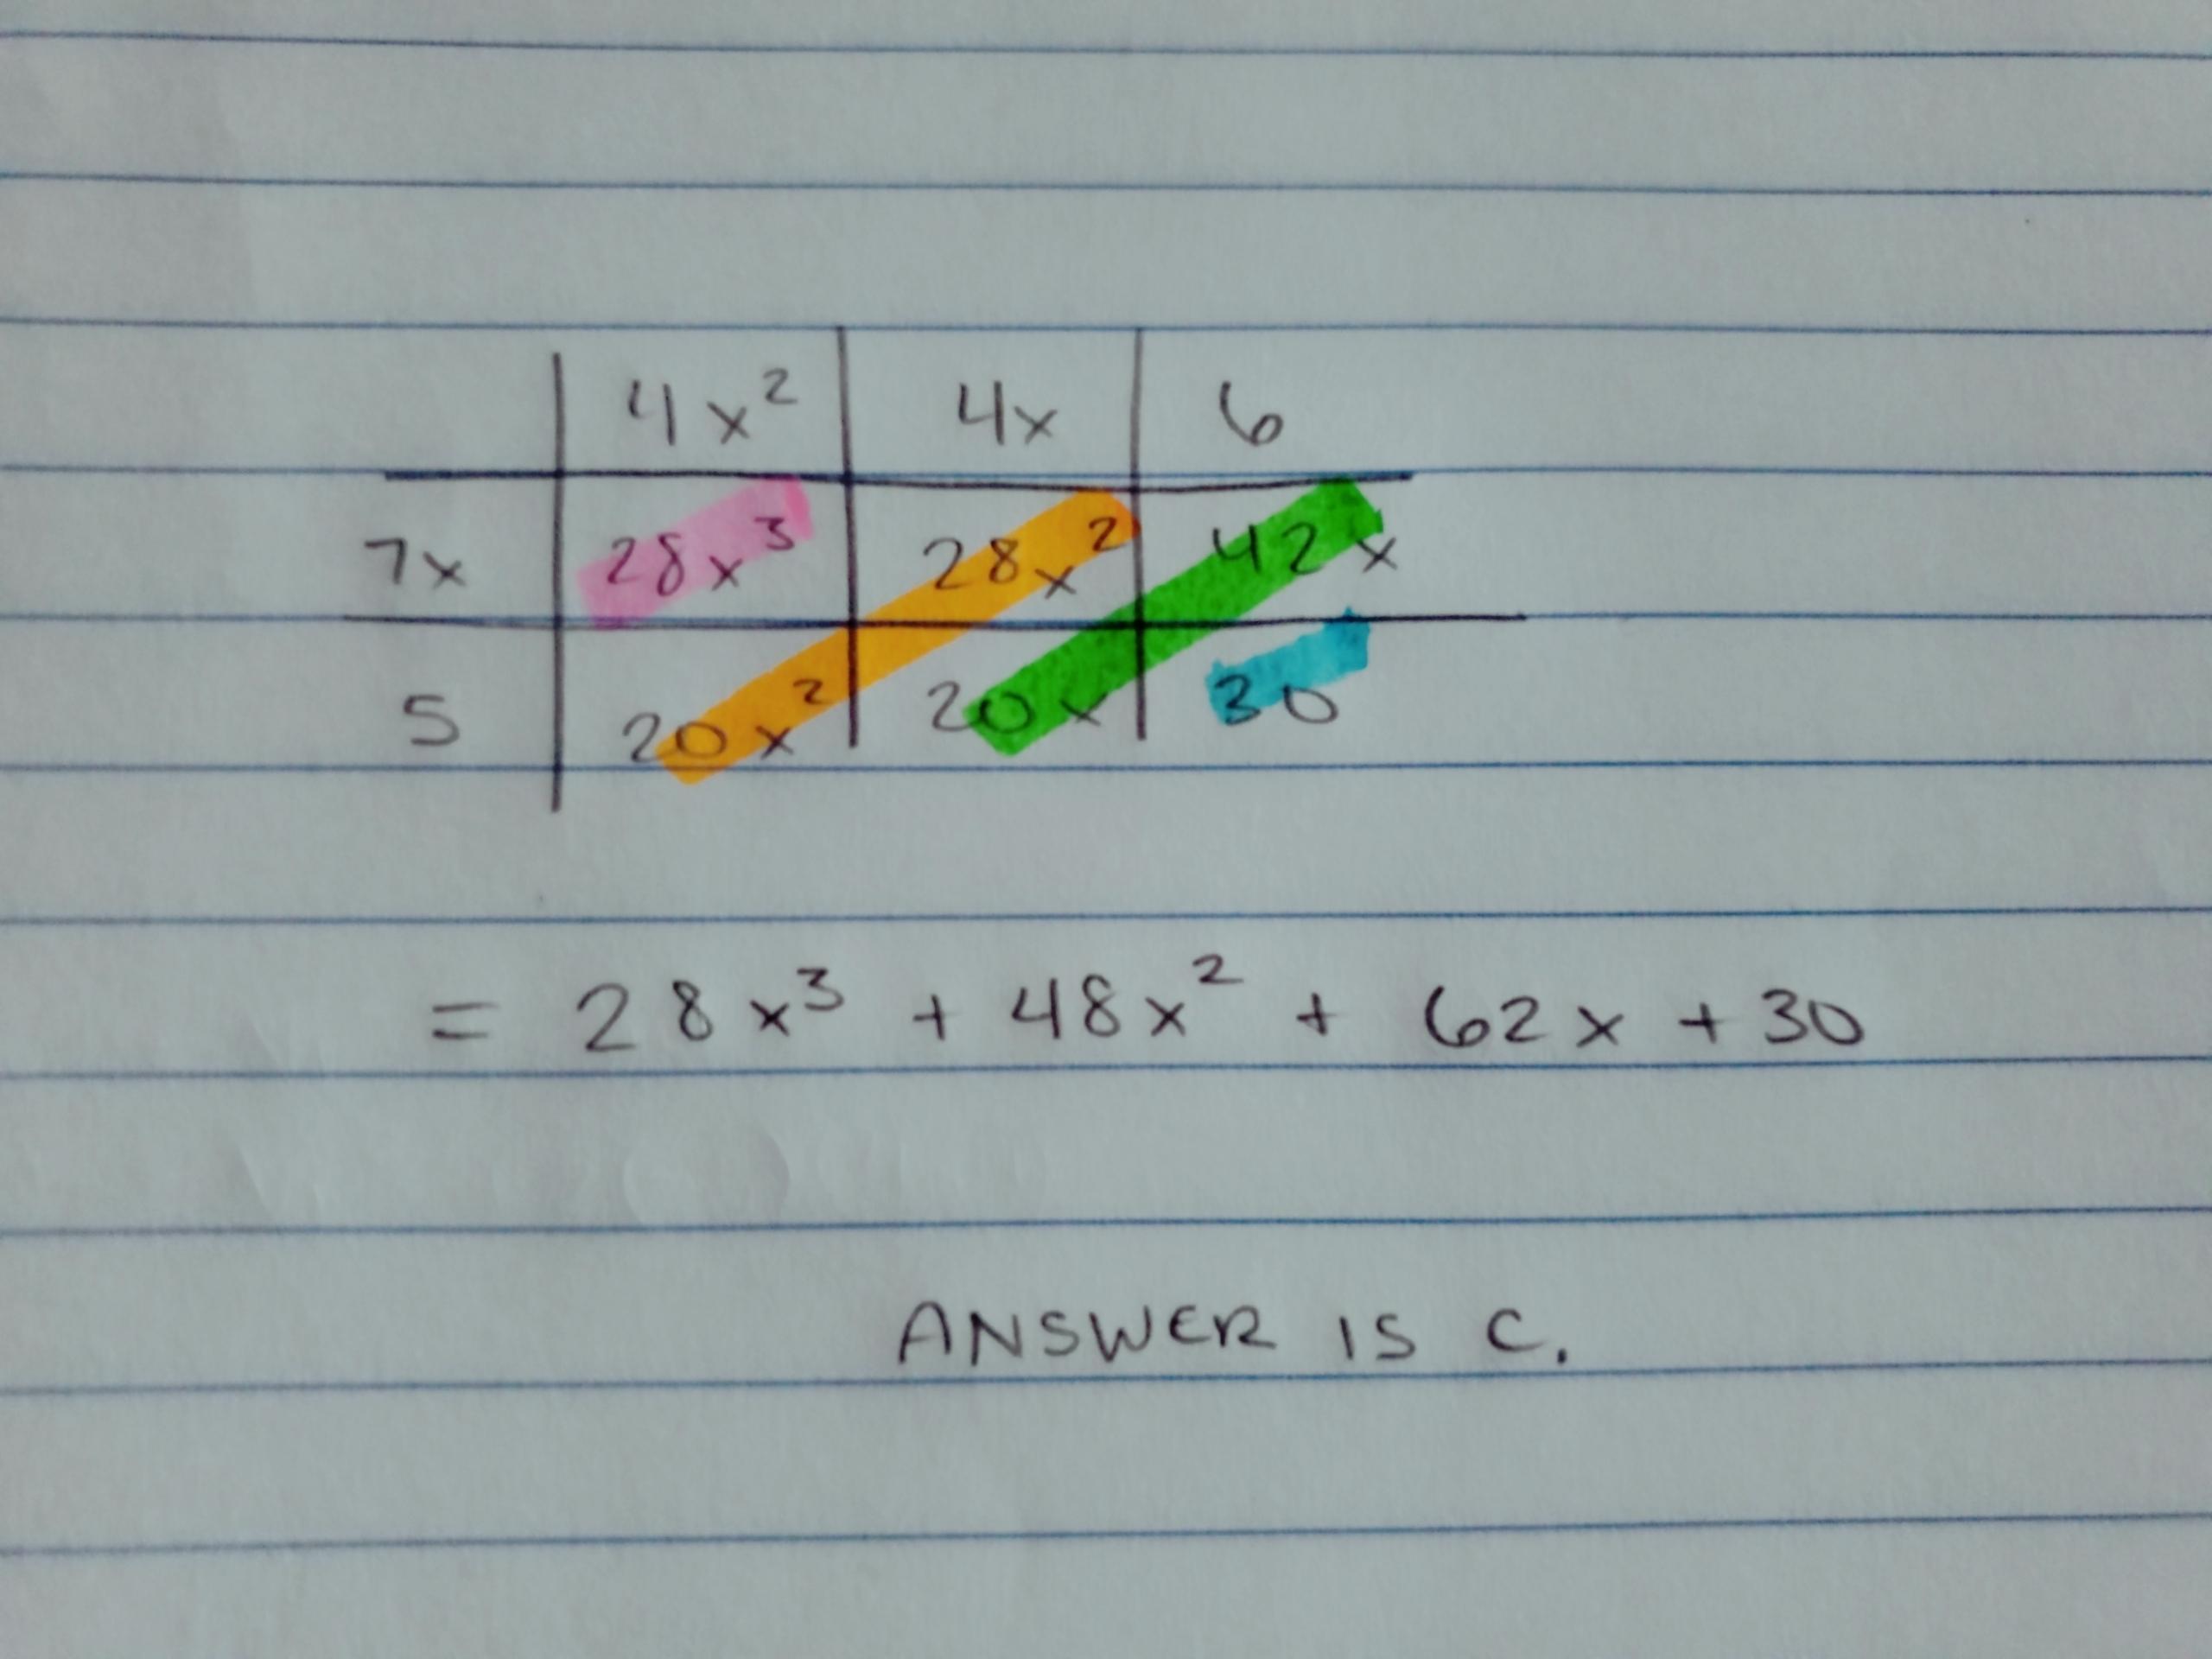 4x² 4x 6
7x 28x³ 28x² 42x
5 20x² 20x 30
= 28x³ + 48x² + 62x + 30
ANSWER IS C.